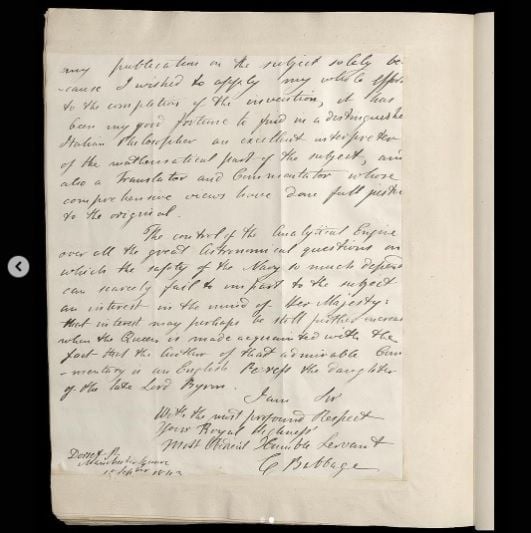 any publication on the subject solely be-
-cause I wished to apply my whole effort
to the completion of the invention, it has
been my good fortune to find in a distinguished
Italian Philosopher an excellent interpreter
of the mathematical part of the subject, and
also a Translator and Commentator whose
comprehensive views have done full justice
to the original.
The control of the Analytical Engine
over all the great Astronomical questions on
which the safety of the Navy so much depends
can scarcely fail to impart to the subject
an interest in the mind of Her Majesty:
that interest may perhaps be still further increased
when the Queen is made acquainted with the
fact that the Author of that admirable Com
-mentary is an English Peeress the daughter
of the late Lord Byron.
I am Sir
With the most profound Respect
Your Royal Highness'
Most Obedient Humble Servant
C Babbage
Dorset St
Manchester Square
1843